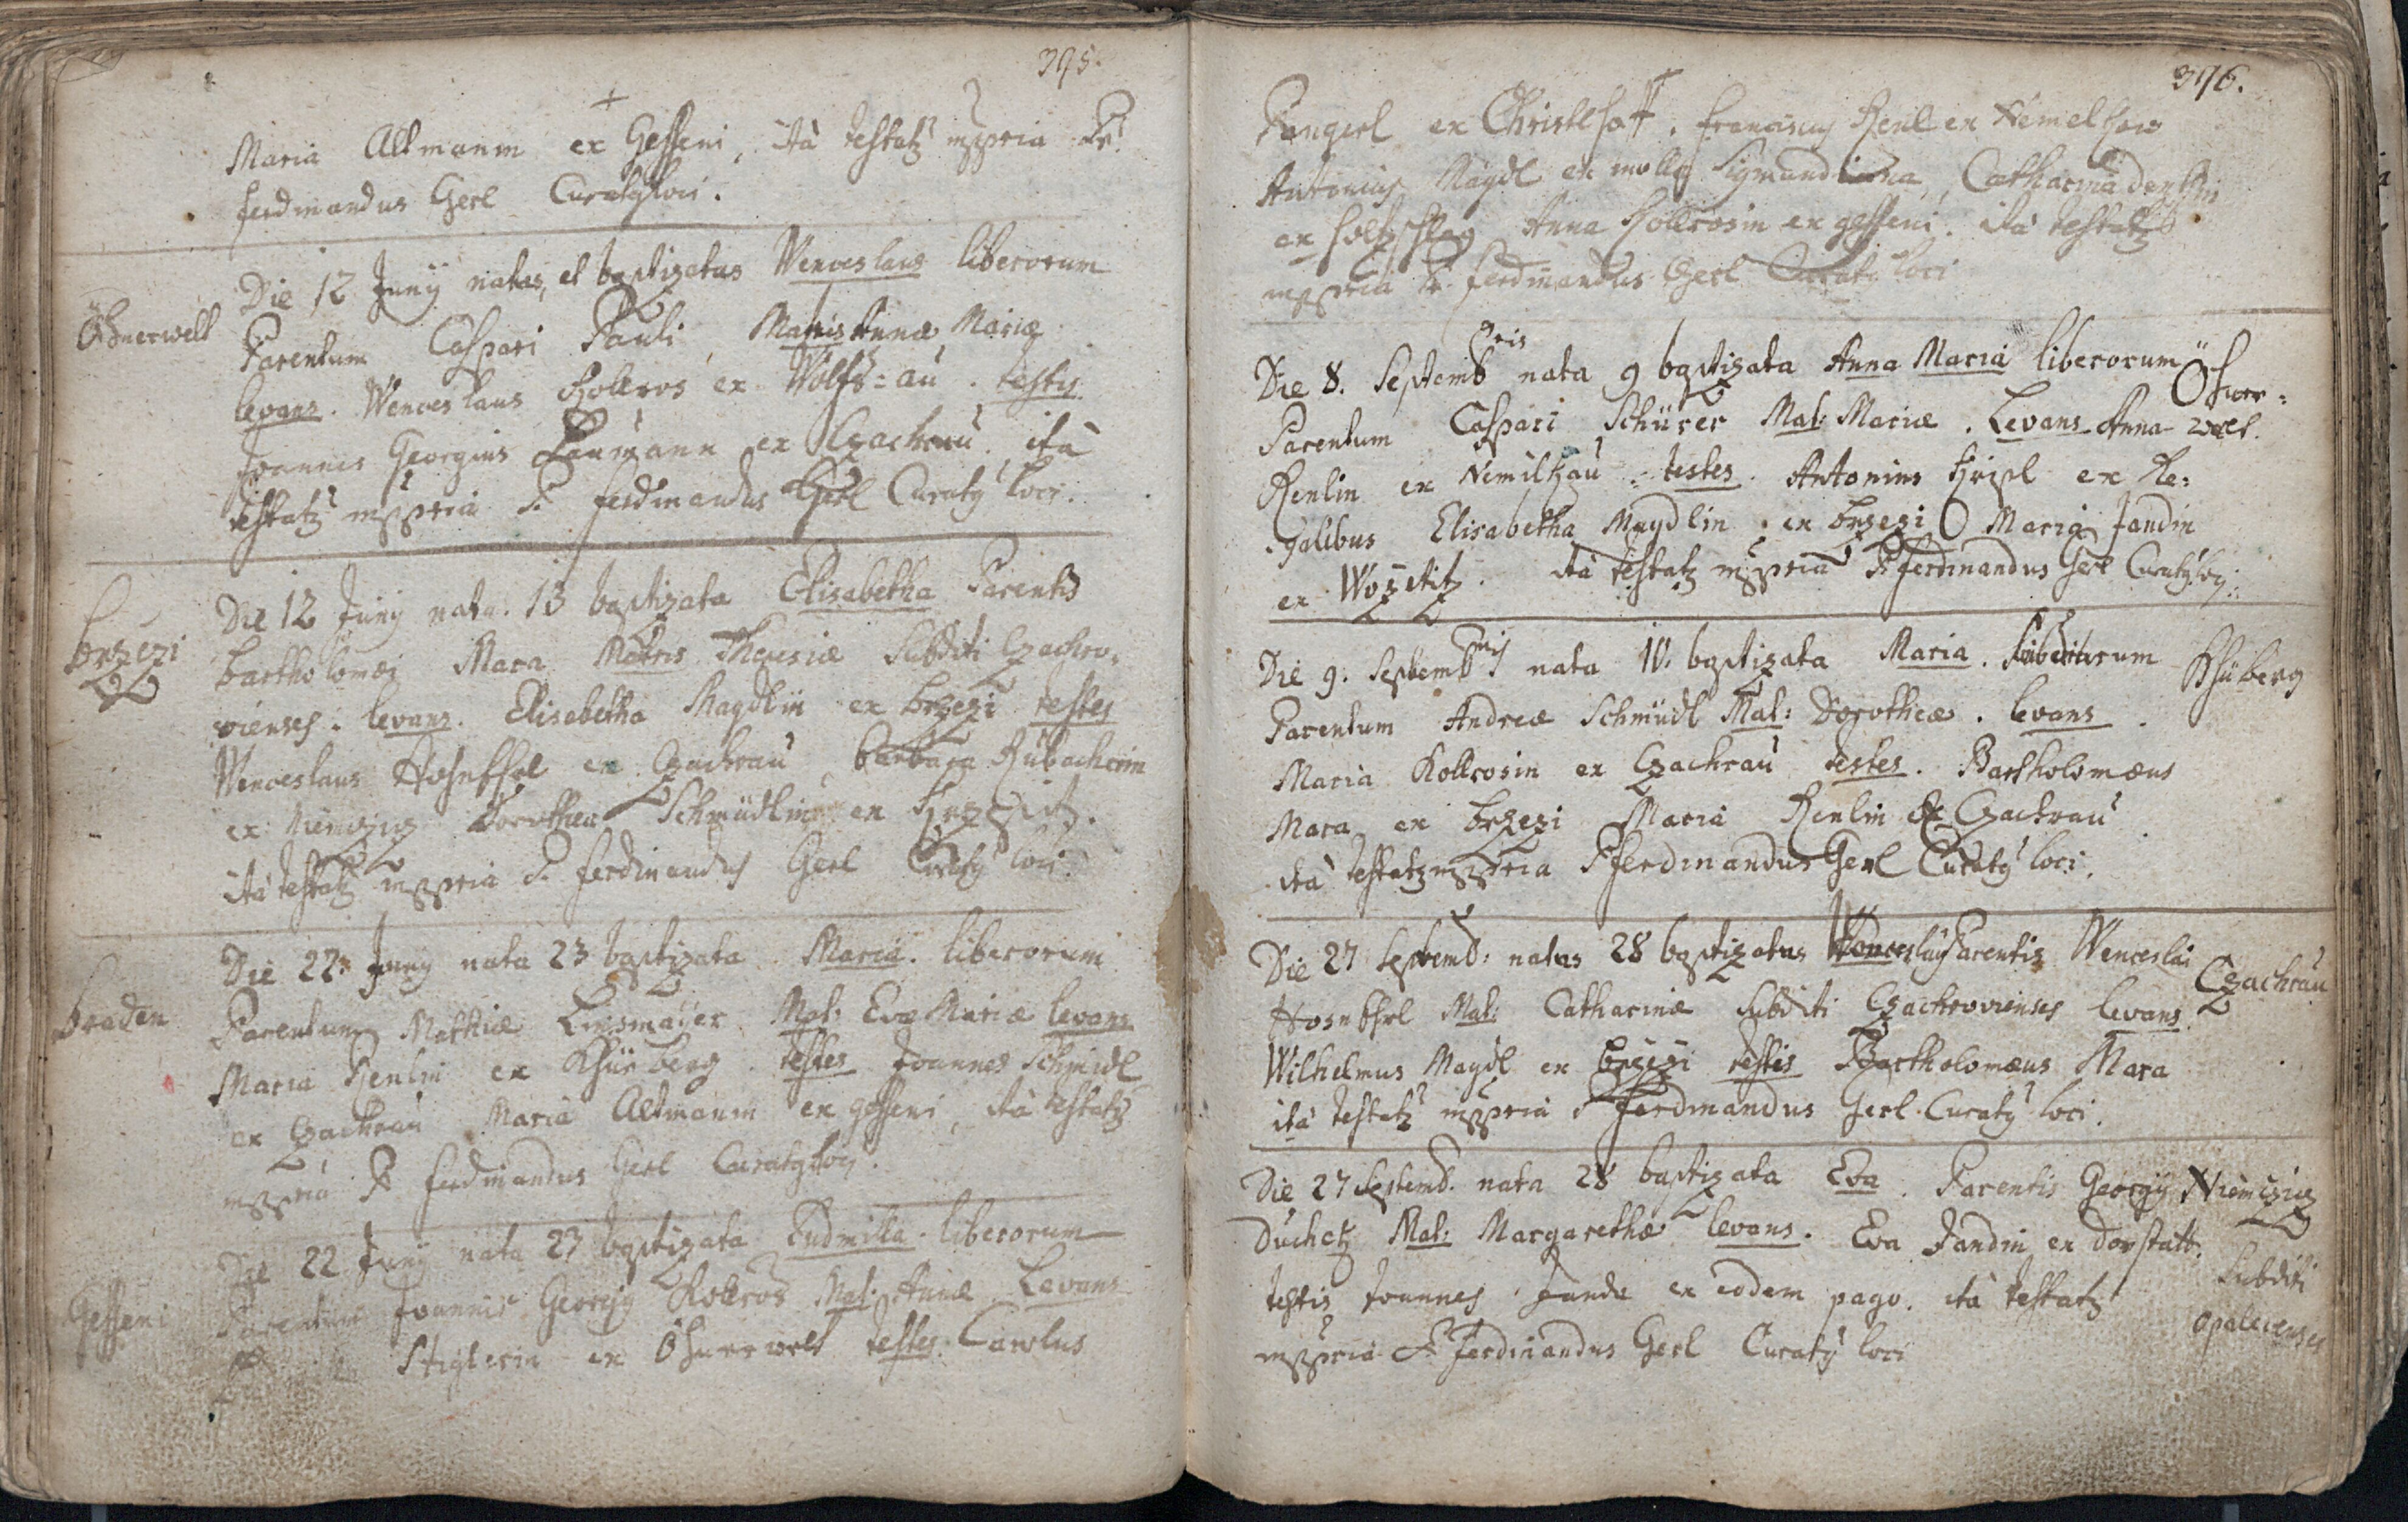 395.
Maria Altmanin ex Gesseni, ità testatz mppria Pr.
ferdinandus Gerl Curatq loci.
Öhnerwelt
Die 12 Junij natus, et baptizatus Wenceslaus liberorum
Parentum Caspari Pauli, Matris Annæ Mariæ
levans. Wenceslaus Kollros ex Wolfs=au. testis
Joannes Georgius Laumann ex Czachrau. ità
testatz mppria P. ferdinandus Gerl Curatq loci.
Brzezi
Die 12 Junij nata. 13 baptizata Elisabetha Parentis
Bartholomæi Mara Matris Theresiæ Subditi Czachro=
vienses. levans. Elisabetha Magdlin ex Brzezi testes
Wenceslaus Hosnethl ex Czachrau, Barbara
ex Niemczicz Dorothea Schmüdlin ex
ità testatz mppria P. ferdinandus Gerl Curatq loci.
Braden
Die 22. Junij nata 23 baptizata Maria. liberorum
Parentum Mathiæ Mat: Eva Mariæ levans
Maria Renlin ex Khüberg. testes Joannes Schmidl
ex Czachrau Maria Altmanin ex gesseni, ità testatz
mppria P ferdinandus Gerl Curatq loci.
Gesseni
Die 22 Junij nata 23 baptizata Ludmilla. liberorum
Parentum Joannis Georgij Kollros Mat: Annæ Levans
Stiglerin ex Öhnerwelt testes. Carolus
396.
Pangerl ex Christlhoff. franciscus Renl ex Nemelhau
Antonius Magdl ex molla Sigmandiana, Catharina
ex holtzschlag Anna Kollrosin ex gesseni. ità testatz
mppria P. ferdinandus Gerl Curatq loci
Die 8. Septembris nata 9 baptizata Anna Maria liberorum
Öhner=
welt.
Parentum Caspari Schürer Mat: Mariæ. Levans Anna
Renlin ex Nemilkau. testes. Antonius ex Re=
galibus Elisabetha Magdlin. ex Brzezi Maria Jandin
ex Wozetitz. ità testatz mppria P ferdinandus Gerl Curatq loci.
Die 9. Septembris nata 10. baptizata Maria. liberorum
Khüberg
Parentum Andreæ Schmüdl Mat: Dorotheæ. levans.
Maria Kollrosin ex Czachrau testes. Bartholomæus
Mara ex Brzezi Maria Renlin ex Czachrau
ità testatz mppria P ferdinandus Gerl Curatq loci.
Die 27 Septemb: natus 28 baptizatus Wenceslaus Parentis Wenceslai
Czachrau
Hosnethl Mat: Catharinæ Subditi Czachrovienses levans.
Wilhelmus Magdl ex Brzezi testis Bartholomæus Mara
ità testatz mppria P ferdinandus Gerl. Curatq loci.
Die 27 Septemb. nata 28 baptizata Eva. Parentis Georgij
Niemczicz
Duchetz Mat: Margarethæ levans. Eva Jandin ex dorstatt.
Subditi
testis Joannes Janda ex eodem pago. ità testatz
opalecenses
mppria P ferdinandus Gerl Curatq loci